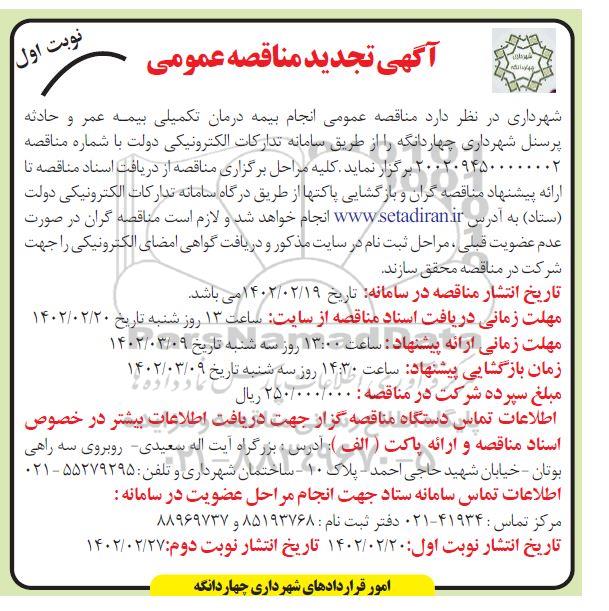 نوبت اول
آگهی تجدید مناقصه عمومی
شهرداری چهاردانگه
شهرداری در نظر دارد مناقصه عمومی انجام بیمه درمان تکمیلی بیمه عمر و حادثه
پرسنل شهرداری چهاردانگه را از طریق سامانه تدارکات الکترونیکی دولت با شماره مناقصه
برگزار نماید .کلیه مراحل برگزاری مناقصه از دریافت اسناد مناقصه تا
ارائه پیشنهاد مناقصه گران و بازگشایی پاکتها از طریق درگاه سامانه تدارکات الکترونیکی دولت
(ستاد) به آدرس www.setadiran.ir انجام خواهد شد و لازم است مناقصه گران در صورت
عدم عضویت قبلی ، مراحل ثبت نام در سایت مذکور و دریافت گواهی امضای الکترونیکی را جهت
شرکت در مناقصه محقق سازند.
تاریخ انتشار مناقصه در سامانه: تاریخ ۱۴۰۲/۰۲/۱۹می باشد.
مهلت زمانی دریافت اسناد مناقصه از سایت: ساعت ۱۳ روز شنبه تاریخ ۱۴۰۲/۰۲/۲۰
مهلت زمانی ارائه پیشنهاد : ساعت ۱۳:۰۰ روز سه شنبه تاریخ ۱۴۰۲/۰۳/۰۹
زمان بازگشایی پیشنهاد: ساعت ۱۴:۳۰ روز سه شنبه تاریخ ۱۴۰۲/۰۳/۰۹
مبلغ سپرده شرکت در مناقصه : ۲۵۰/۰۰۰/۰۰۰ ریال
اطلاعات تماس دستگاه مناقصه گزار جهت دریافت اطلاعات بیشتر در خصوص
اسناد مناقصه و ارائه پاکت ( الف ): آدرس : بزرگراه آیت اله سعیدی- روبروی سه راهی
بوتان -خیابان شهید حاجی احمد - پلاک ۱۰ -ساختمان شهرداری و تلفن : ۵۵۲۷۹۲۹۵ -۰۲۱
اطلاعات تماس سامانه ستاد جهت انجام مراحل عضویت در سامانه :
مرکز تماس : ۴۱۹۳۴-۰۲۱ دفتر ثبت نام : ۸۵۱۹۳۷۶۸ و ۸۸۹۶۹۷۳۷
تاریخ انتشار نوبت اول:۱۴۰۲/۰۲/۲۰ تاریخ انتشار نوبت دوم:۱۴۰۲/۰۲/۲۷
امور قراردادهای شهرداری چهاردانگه